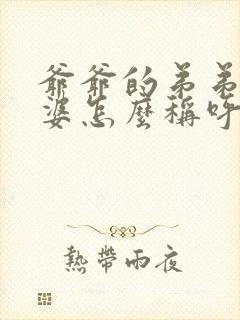 爺爺的弟弟
婆怎麼稱呼
熱帶雨夜